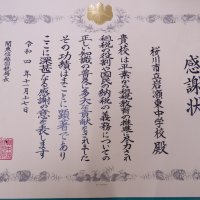 感謝状
桜川市立岩瀬東中学校 殿
貴校は平素から租税教育の推進に尽力され
納税の役割や国民の納税の義務についての
正しい知識の普及に多大な貢献をされました
その功績はまことに顕著であり
ここに深甚なる感謝の意を表します
令和四年十一月十七日
関東信越国税局長